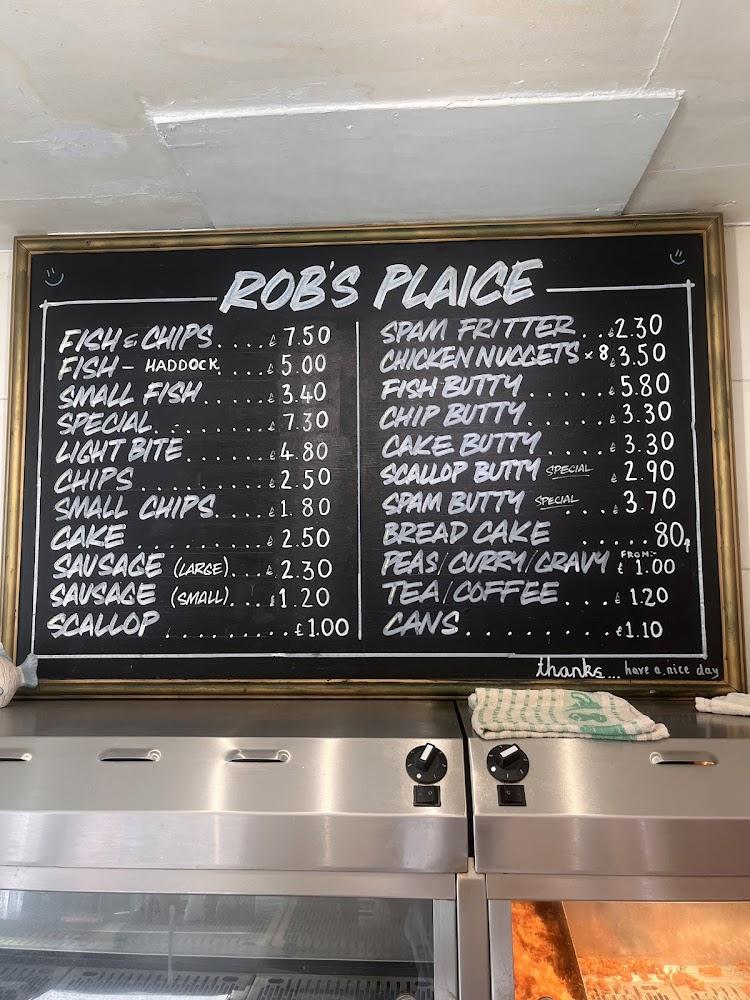 ROB'S PLAICE
FISH & CHIPS.....£7.50
FISH - HADDOCK....£5.00
SMALL FISH.......£3.40
SPECIAL.........£7.30
LIGHT BITE.......£4.80
CHIPS..........£2.50
SMALL CHIPS.....£1.80
CAKE...........£2.50
SAUSAGE (LARGE)...£2.30
SAUSAGE (SMALL)...£1.20
SCALLOP.........£1.00
SPAM FRITTER...£2.30
CHICKEN NUGGETS × 8.£3.50
FISH BUTTY......£5.80
CHIP BUTTY......£3.30
CAKE BUTTY.....£3.30
SCALLOP BUTTY SPECIAL.£2.90
SPAM BUTTY SPECIAL..£3.70
BREAD CAKE.....80p
PEAS/CURRY/GRAVY FROM:- £1.00
TEA/COFFEE...£1.20
CANS..........£1.10
thanks... have a nice day